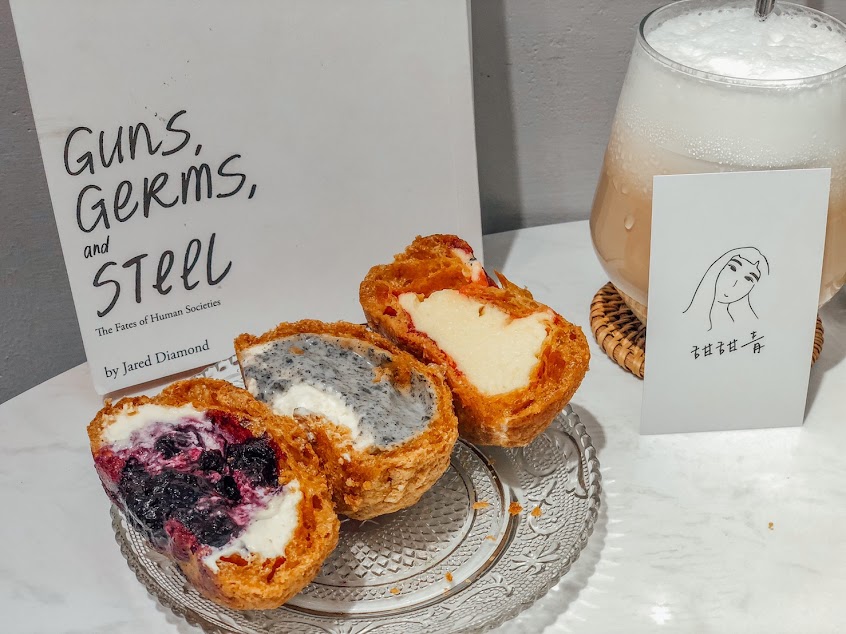 GUNS,
GERMS,
and
STEEL
The Fates of Human Societies
by Jared Diamond
甜甜青